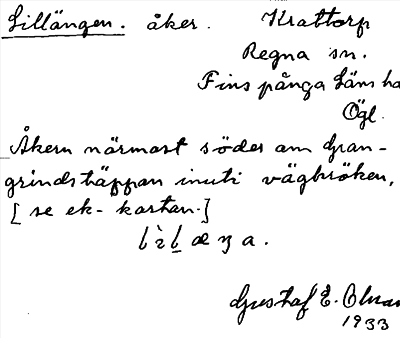 Lillängen. åker. Krattorp
Regna sn.
Finspånga läns ha
Ögl.
Åkern närmast söder om Gran-
grindstäppan inuti vägkröken.
[se ek-kartan.]
Gustaf E.
1933